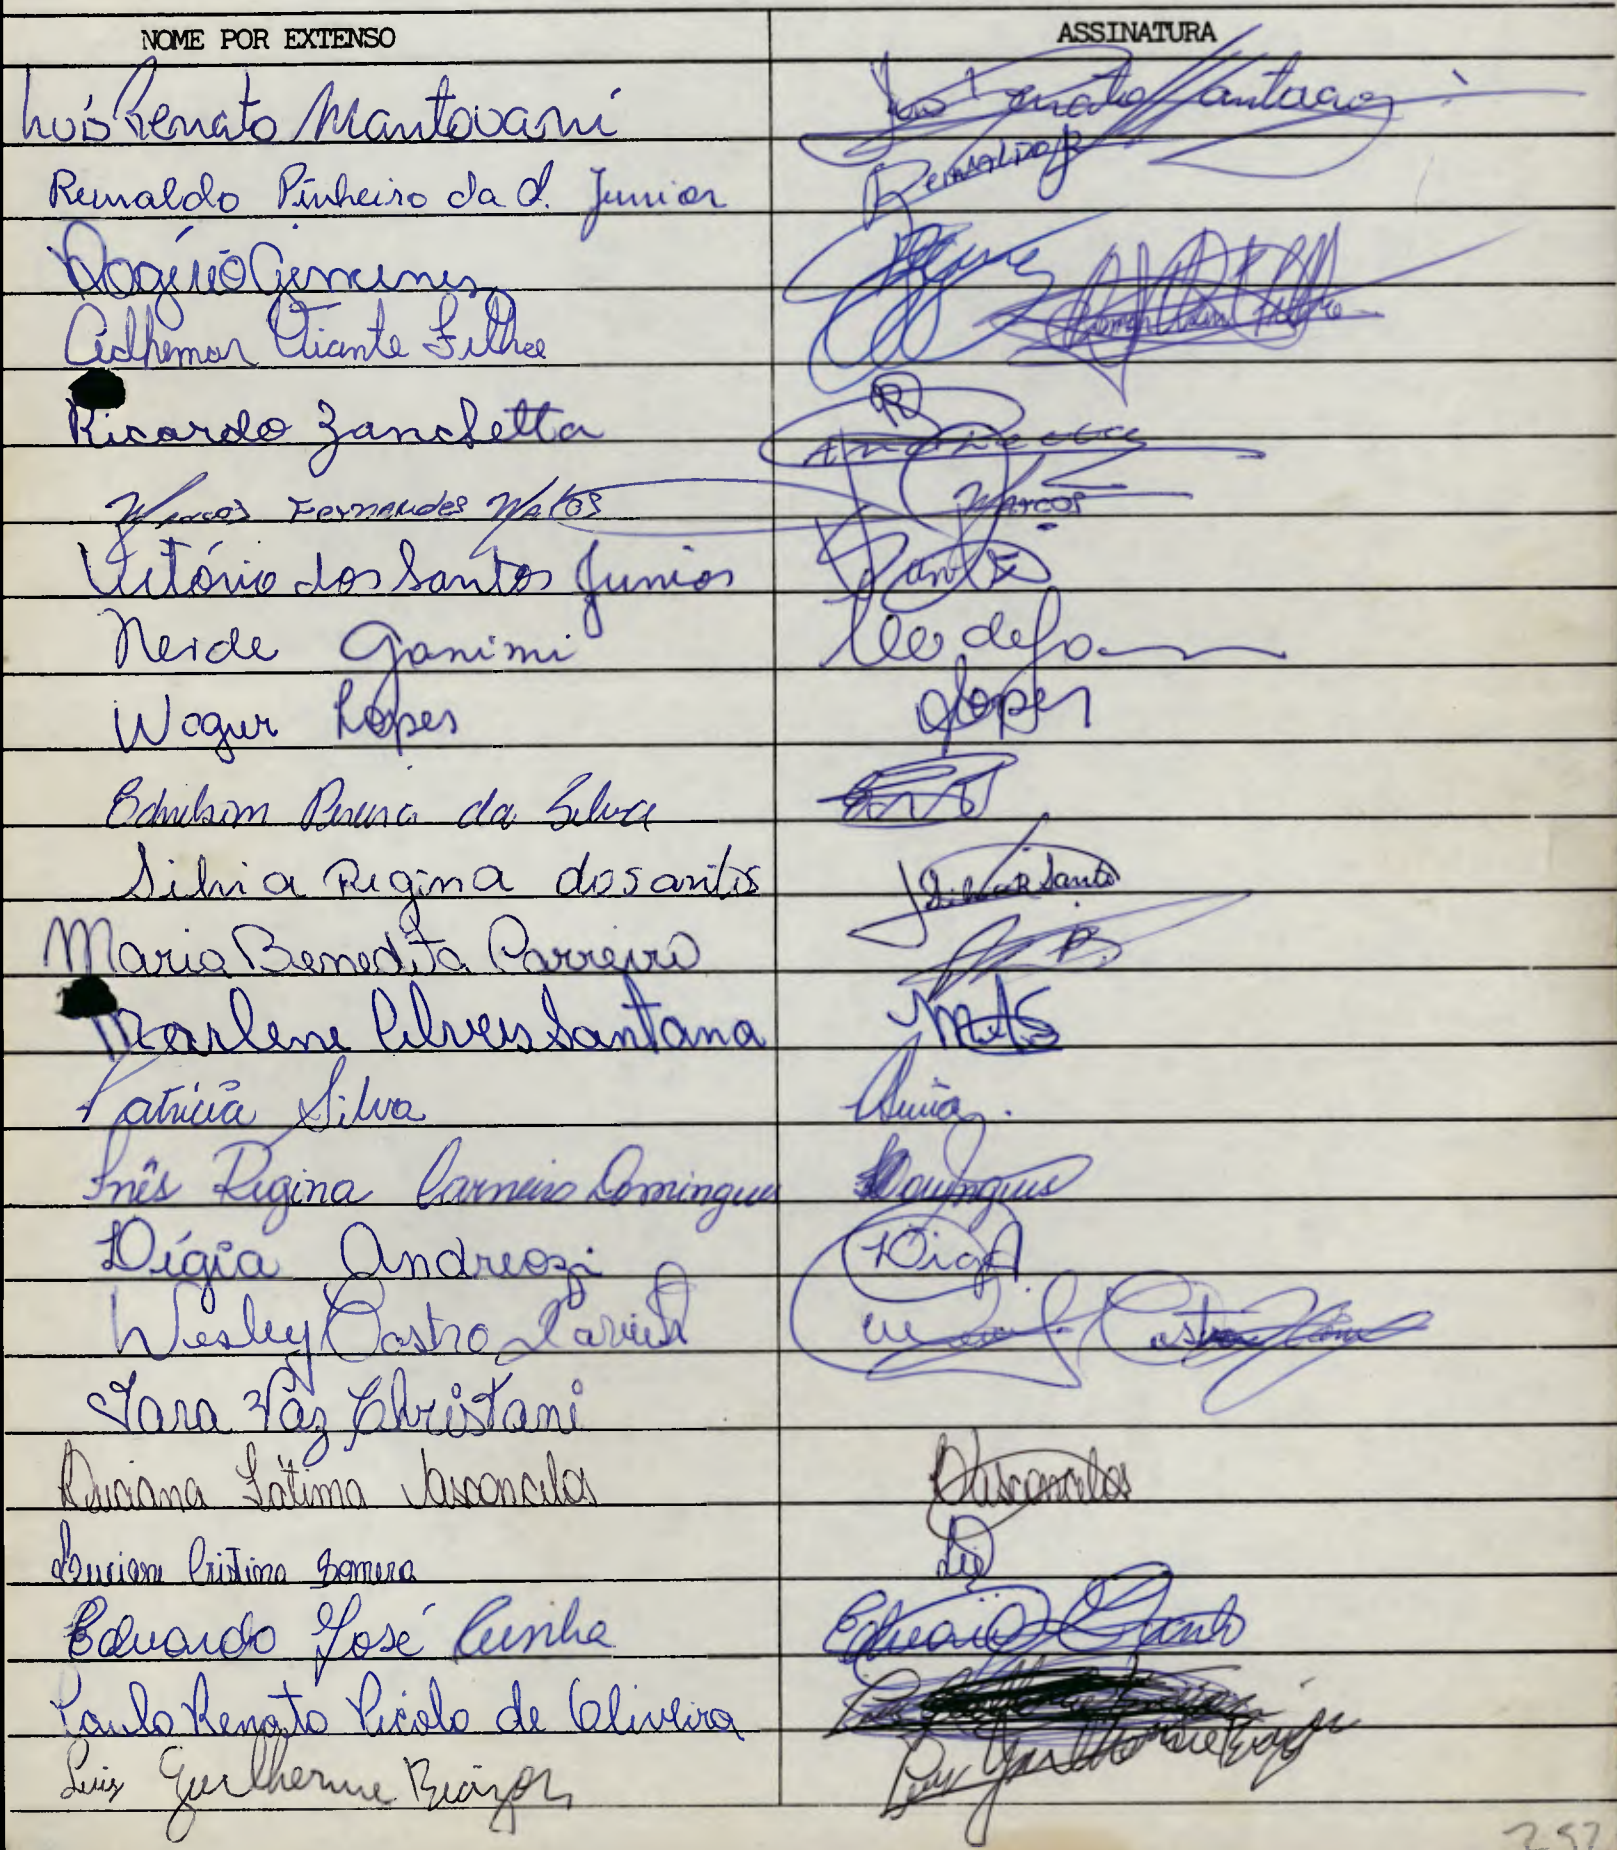 NOME POR EXTENSO ASSINATURA
Luís Renato Mantovani Luis Renato Mantovani
Reinaldo Pinheiro da S. Junior Reinaldo Jr
Rogério Gimenes
Adhemar Viante Filho
Ricardo Zanchetta
Marcos Fernandes Matos Marcos
Vitório dos Santos Junior
Neide Ganimi
Wagner Lopes Lopes
Ednilson Pereira da Silva
Silvia Regina dos antos Silvia R Santos
Maria Benedita Parreira
Marlene Alves Santana MAS
Patrícia Silva
Inês Regina Carneiro Domingues Domingues
Lígia Andreozi Lígia
Wesley Castro Xavier Wesley Castro
Iara Vaz Christani
Luciana Fátima Vasconcelos Vasconcelos
Luciane Cristina Lu
Eduardo José Cunha Eduardo Cunha
Paulo Renato Picolo de Oliveira
Luis Guilherme Luis Guilherme
257